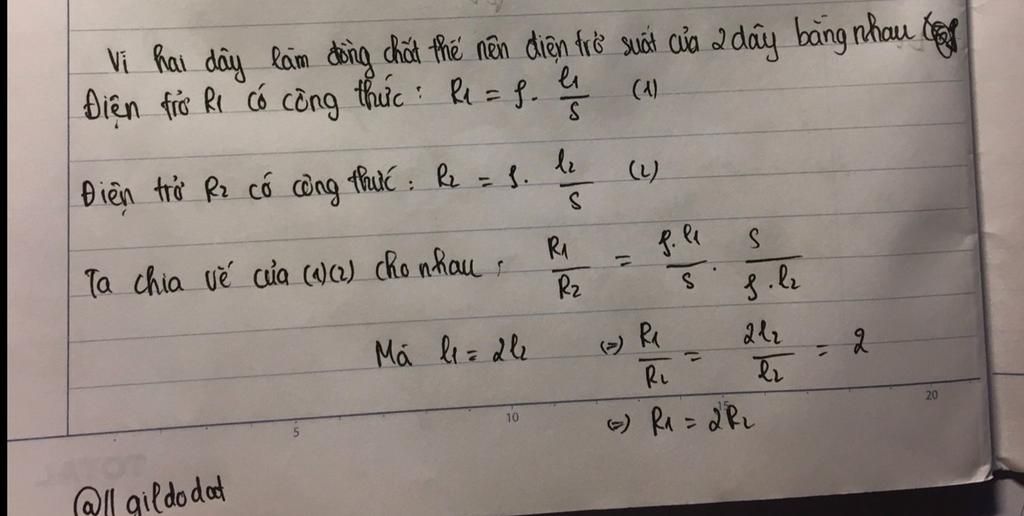 Vì hai dây làm đồng chất thế nên điện trở suất của 2 dây bằng nhau
Điện trở R1 có công thức: R1 = ρ. l1/S (1)
Điện trở R2 có công thức: R2 = ρ. l2/S (2)
Ta chia vế của (1)(2) cho nhau: R1/R2 = ρ.l1/S . S/ρ.l2
Mà l1 = 2l2 (=) R1/R2 = 2l2/l2 = 2
5 10 15 20
(=) R1 = 2R2
TOTAL
@llgildodat